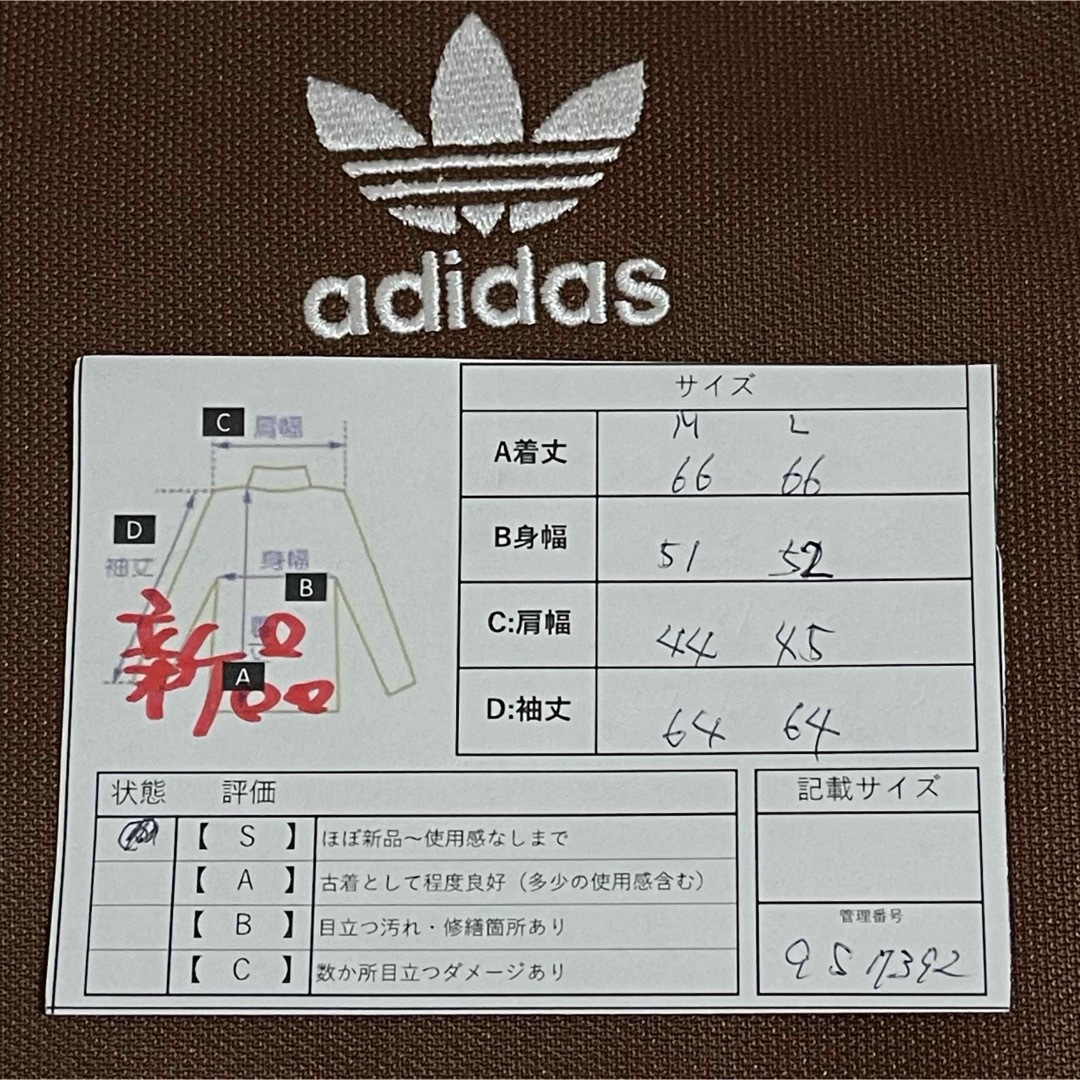 adidas
C 肩幅
D
袖丈
身幅
B
A
新品
サイズ
M L
A着丈 66 66
B身幅 51 52
C:肩幅 44 45
D:袖丈 64 64
状態 評価
【 S 】 ほぼ新品～使用感なしまで
【 A 】 古着として程度良好（多少の使用感含む）
【 B 】 目立つ汚れ・修繕箇所あり
【 C 】 数か所目立つダメージあり
記載サイズ
管理番号